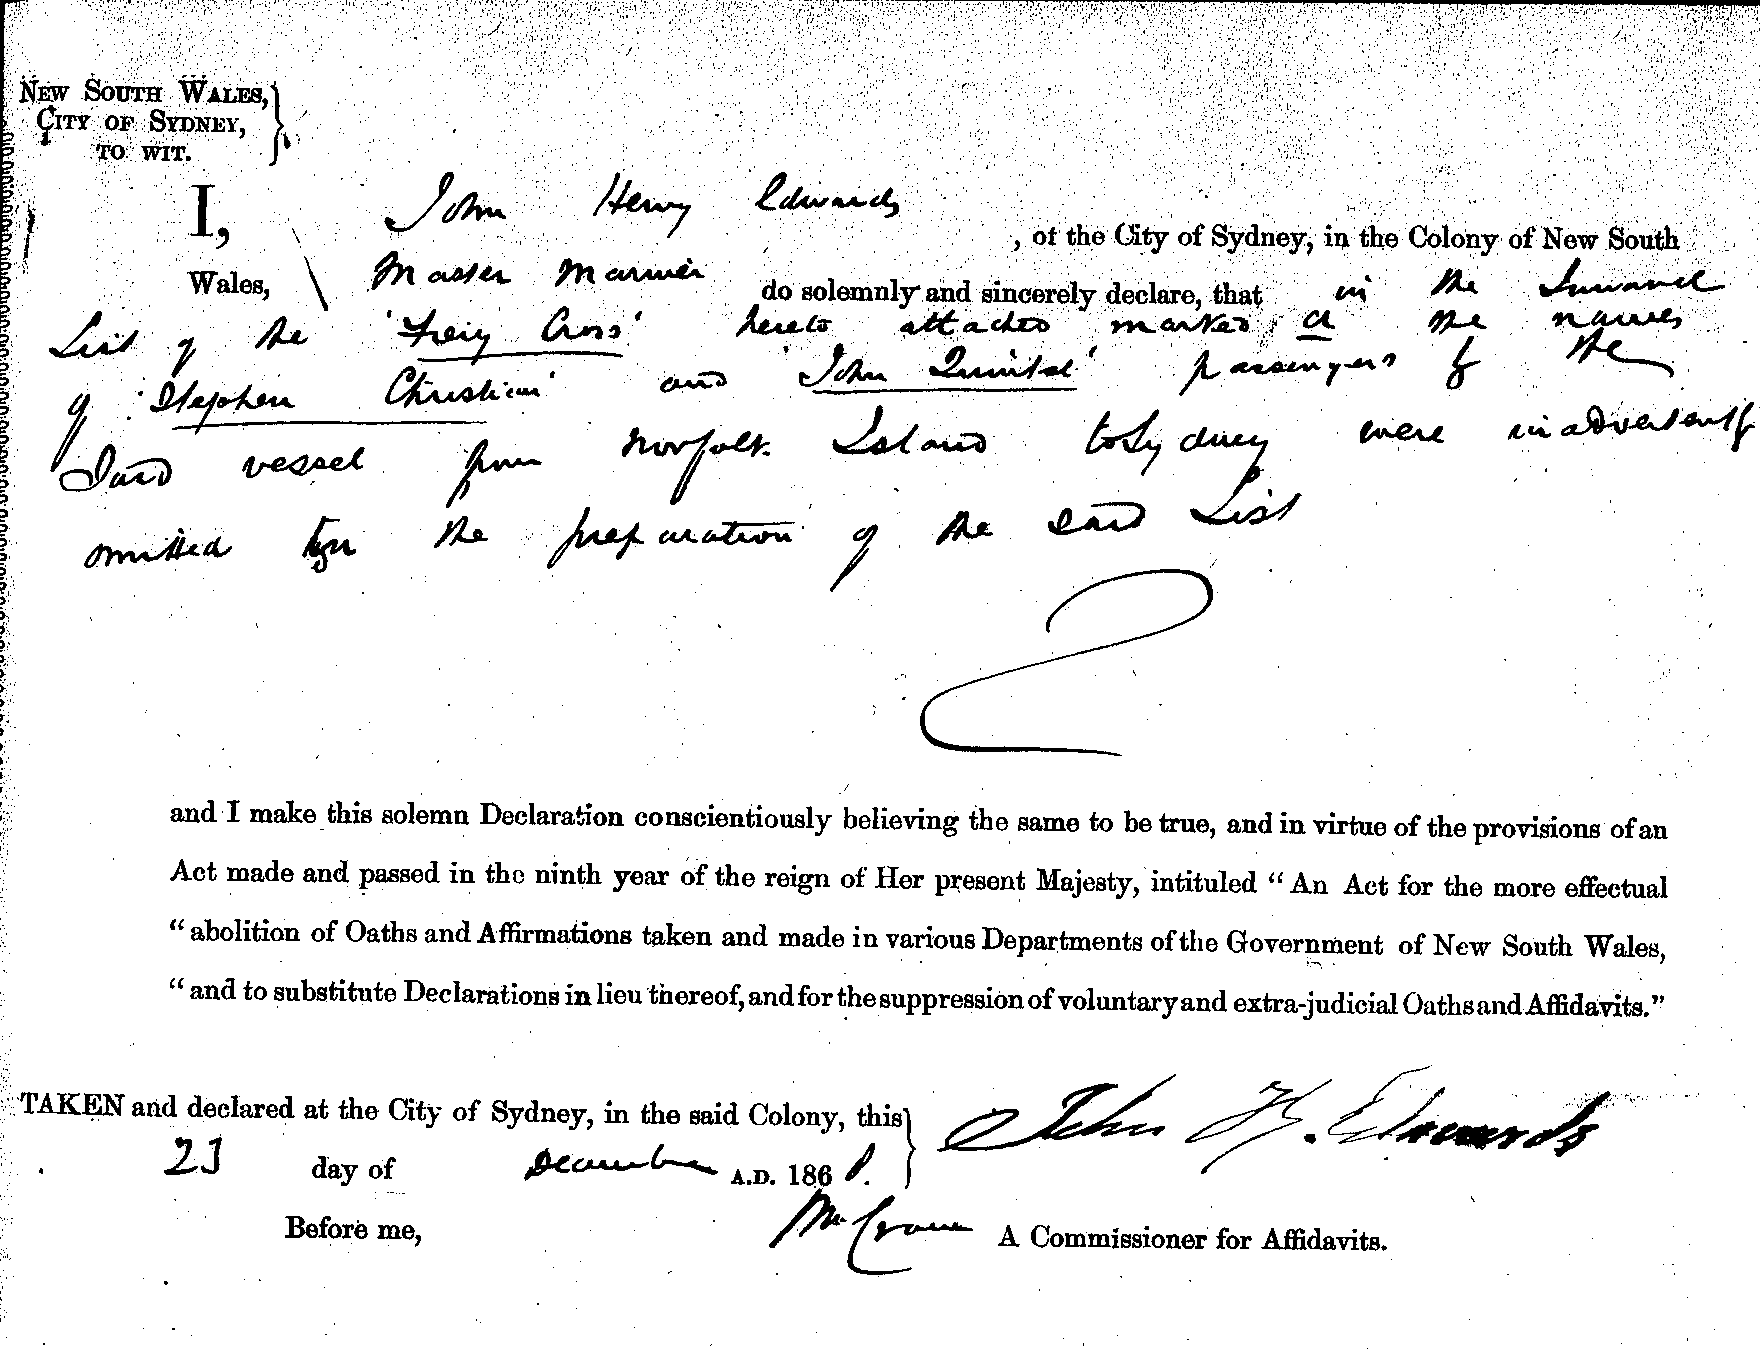 NEW SOUTH WALES,
CITY OF SYDNEY,
TO WIT.
I, John Henry Edwards, of the City of Sydney, in the Colony of New South
Wales, Master Mariner do solemnly and sincerely declare, that in the Inward
List of the 'Fiery Cross' hereto attached marked a the names
of 'Stephen Christian' and 'John Quintal' passengers by the
Said vessel from Norfolk Island to Sydney were inadvertently
omitted in the preparation of the said List
and I make this solemn Declaration conscientiously believing the same to be true, and in virtue of the provisions of an
Act made and passed in the ninth year of the reign of Her present Majesty, intituled “An Act for the more effectual
“abolition of Oaths and Affirmations taken and made in various Departments of the Government of New South Wales,
“and to substitute Declarations in lieu thereof, and for the suppression of voluntary and extra-judicial Oaths and Affidavits.”
TAKEN and declared at the City of Sydney, in the said Colony, this
John H. Edwards
23 day of December A.D. 186
Before me, A Commissioner for Affidavits.